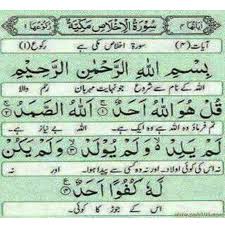 اٰيَاتُهَا ۴ سُوْرَةُ الْاِخْلَاصِ مَكِّيَّةٌ رُكُوْعُهَا ۱
آیات (۴) سورۃ اخلاص مکی ہے رکوع (۱)
بِسْمِ اللّٰهِ الرَّحْمٰنِ الرَّحِيْمِ
اللہ کے نام سے شروع جو نہایت مہربان رحم والا
قُلْ هُوَ اللّٰهُ اَحَدٌ ۝۱ اَللّٰهُ الصَّمَدُ ۝۲
تم فرماؤ وہ اللہ ہے وہ ایک ہے۔ اللہ بے نیاز ہے۔
لَمْ يَلِدْ ۙ وَلَمْ يُوْلَدْ ۝۳ وَلَمْ يَكُنْ
نہ اس کی کوئی اولاد۔ اور نہ وہ کسی سے پیدا ہوا۔ اور نہ
لَّهٗ كُفُوًا اَحَدٌ ۝۴
اس کے جوڑ کا کوئی۔